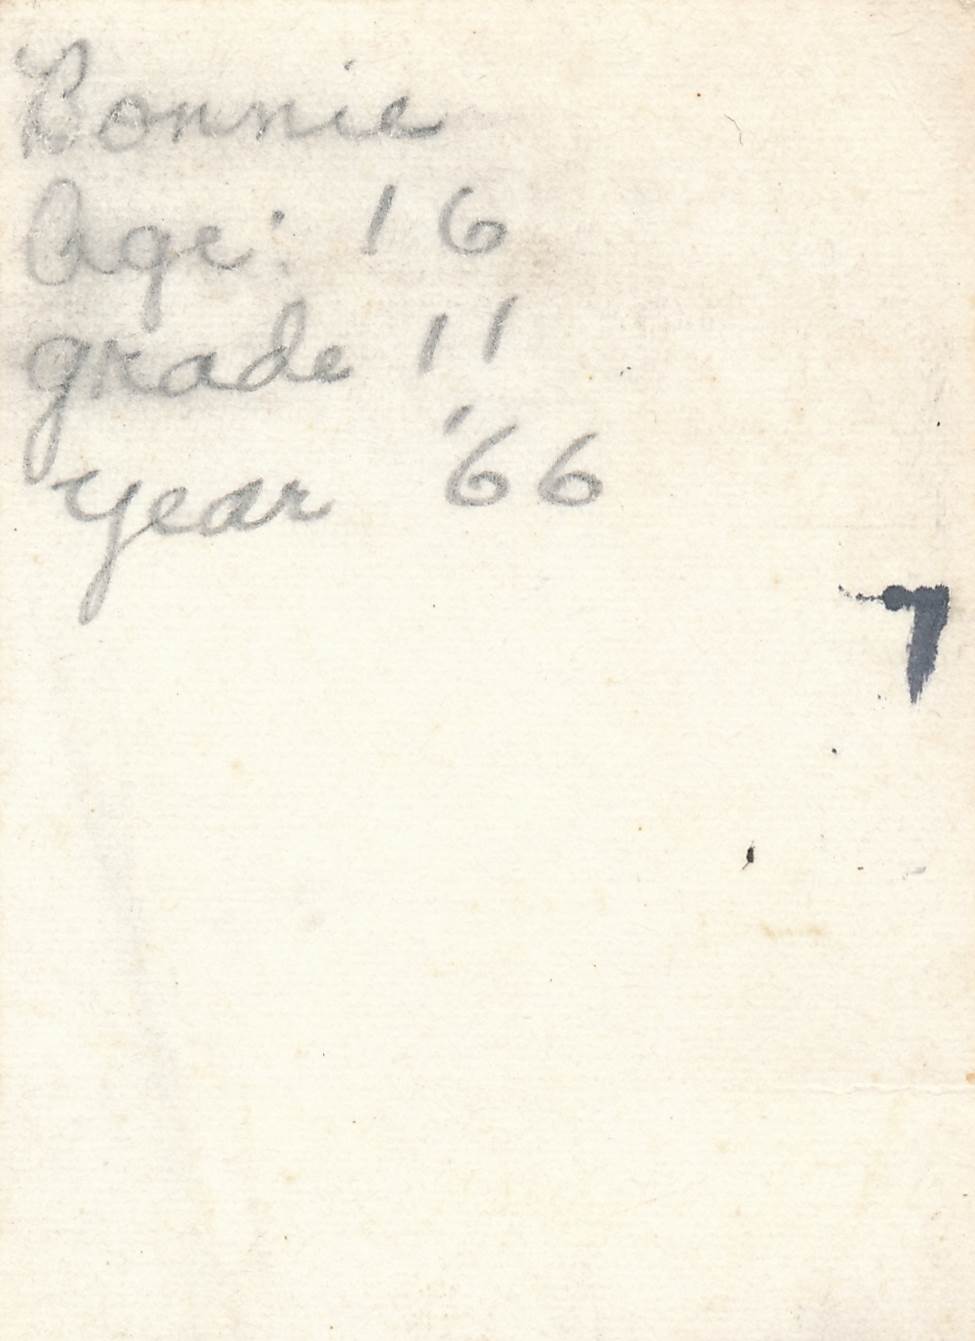 Bonnie
Age: 16
grade 11
year '66
7